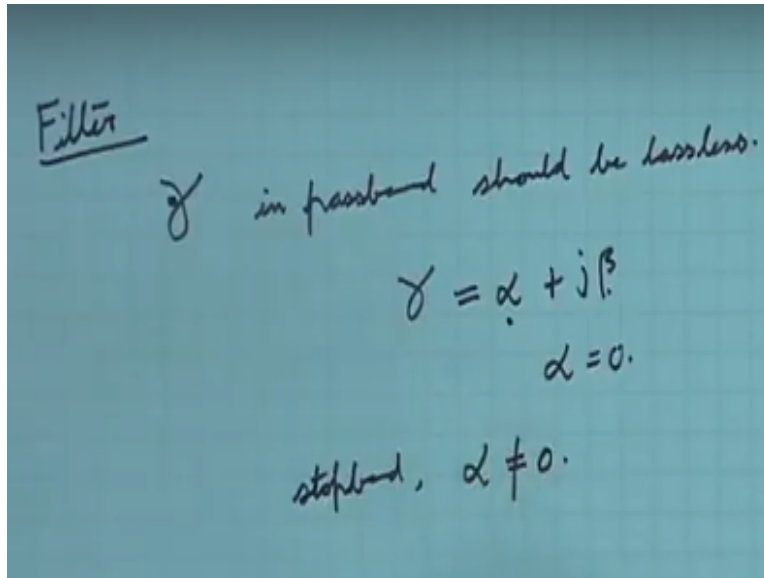 Filter
γ in passband should be lossless.
γ = α + jβ
α = 0.
stopband, α ≠ 0.